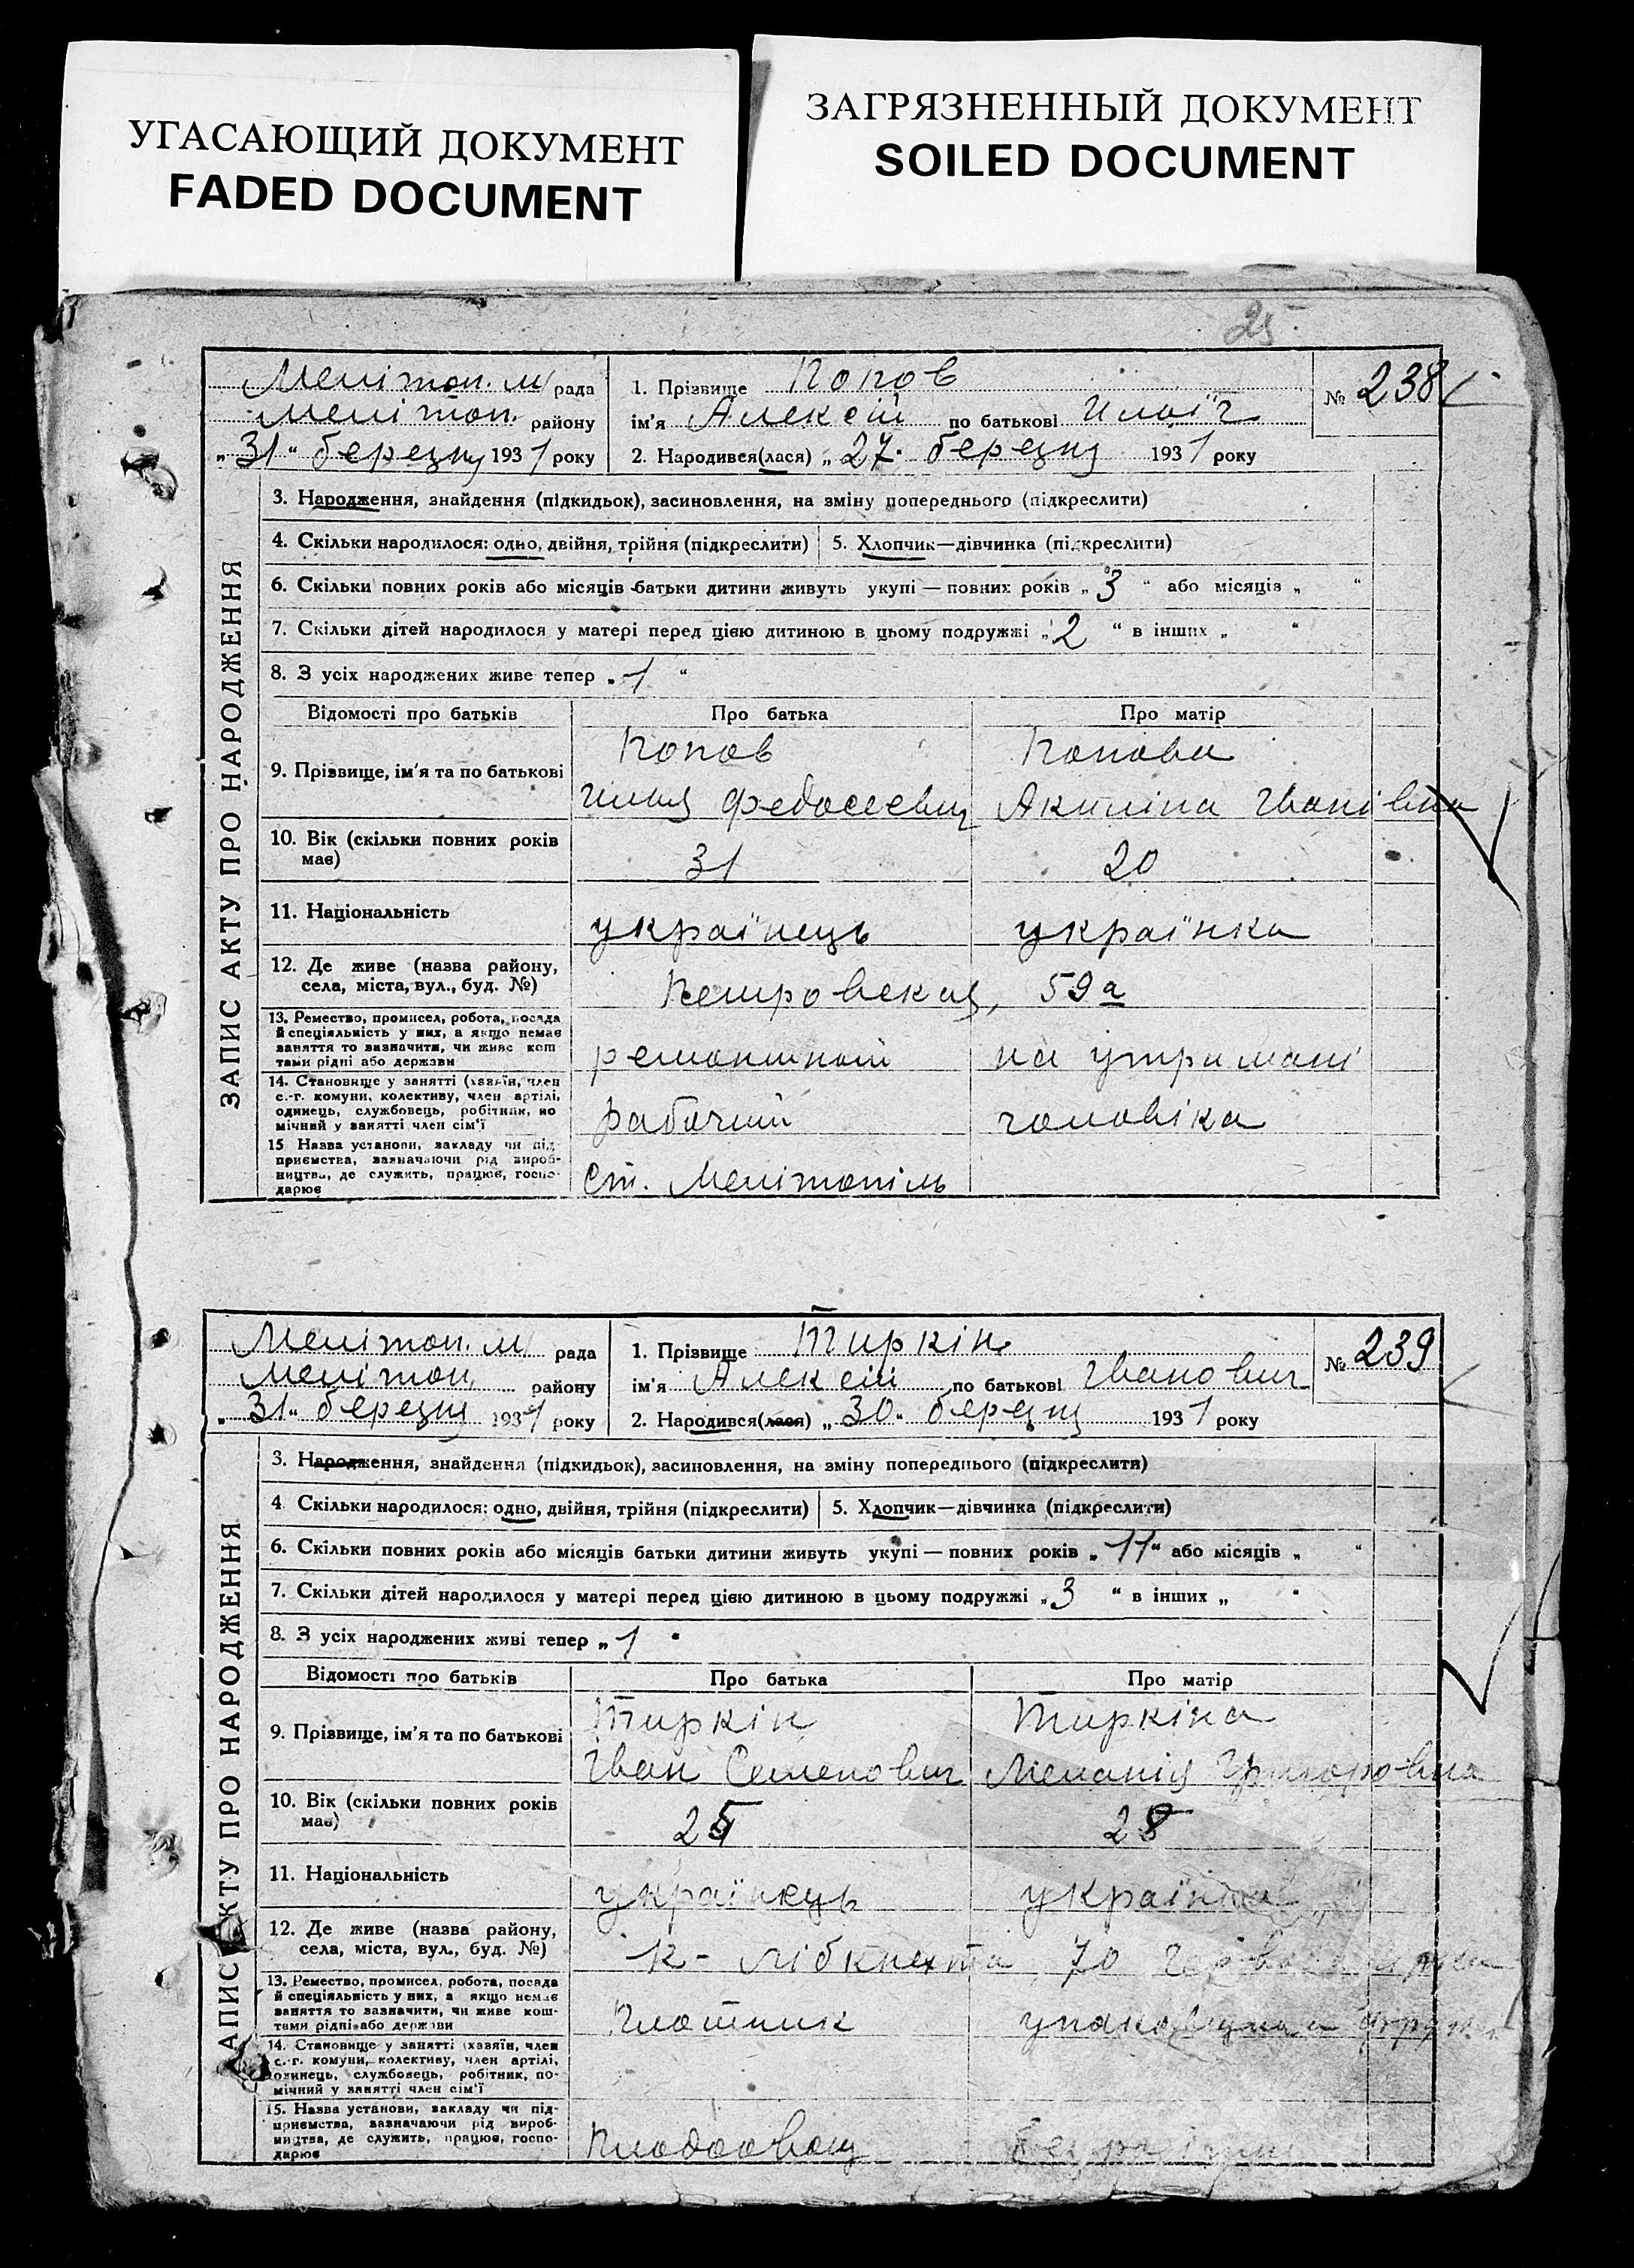 УГАСАЮЩИЙ ДОКУМЕНТ
FADED DOCUMENT
ЗАГРЯЗНЕННЫЙ ДОКУМЕНТ
SOILED DOCUMENT
25
ЗАПИС АКТУ ПРО НАРОДЖЕННЯ
Мелітоп. м/ рада
Мелітоп. району
„ 31 “ березня 1931 року
1. Прізвище Попов
ім'я Алексій по батькові Ильїч
2. Народився(лася) „ 27. березня 1931 року
№ 238
3. Народження, знайдення (підкидьок), засиновлення, на зміну попереднього (підкреслити)
4. Скільки народилося: одно, двійня, трійня (підкреслити) 5. Хлопчик—дівчинка (підкреслити)
6. Скільки повних років або місяців батьки дитини живуть укупі — повних років „ 3 “ або місяців „ “
7. Скільки дітей народилося у матері перед цією дитиною в цьому подружжі „ 2 “ в інших „ “
8. З усіх народжених живе тепер „ 1 “
Відомості про батьків Про батька Про матір
9. Прізвище, ім'я та по батькові
Попов Попова
Илья Федосеевич Акиліна Іванівна
10. Вік (скільки повних років має) 31 20
11. Національність українець українка
12. Де живе (назва району, села, міста, вул., буд. №) Петровская, 59а
13. Ремество, промисел, робота, посада й спеціяльність у них, а якщо немає заняття то визначити, чи живе коштами рідні або держави
ремонтной на утримані
14. Становище у занятті (хазяїн, член с.-г. комуни, колективу, член артілі, одинець, службовець, робітник, помічний у занятті член сім'ї
рабочий чоловіка
15 Назва установи, закладу чи підприємства, зазначаючи рід виробництва, де служить, працює, господарює
ст. Мелітопіль
ЗАПИС АКТУ ПРО НАРОДЖЕННЯ
Мелітоп. м/ рада
Мелітоп. району
„ 31 “ березня 1931 року
1. Прізвище Тиркін
ім'я Алексій по батькові Іванович
2. Народився(лася) „ 30 “ березня 1931 року
№ 239
3. Народження, знайдення (підкидьок), засиновлення, на зміну попереднього (підкреслити)
4 Скільки народилося: одно, двійня, трійня (підкреслити) 5. Хлопчик—дівчинка (підкреслити)
6. Скільки повних років або місяців батьки дитини живуть укупі — повних років „ 11 “ або місяців „ “
7. Скільки дітей народилося у матері перед цією дитиною в цьому подружжі „ 3 “ в інших „ “
8. З усіх народжених живі тепер „ 1 “
Відомості про батьків Про батька Про матір
9. Прізвище, ім'я та по батькові
Тиркін Тиркіна
Іван Семенович Меланія Григоровна
10. Вік (скільки повних років має) 28
11. Національність українець українка
12. Де живе (назва району, села, міста, вул., буд. №) К-Лібкнехта, 70
13. Ремество, промисел, робота, посада й спеціяльність у них, а якщо немає заняття то зазначити, чи живе коштами рідні або держави
Плотник
14. Становище у занятті (хазяїн, член с.-г. комуни, колективу, член артілі, одинець, службовець, робітник, помічний у занятті член сім'ї
15. Назва установи, закладу чи підприємства, зазначаючи рід виробництва, де служить, працює, господарює
Плодоовощ